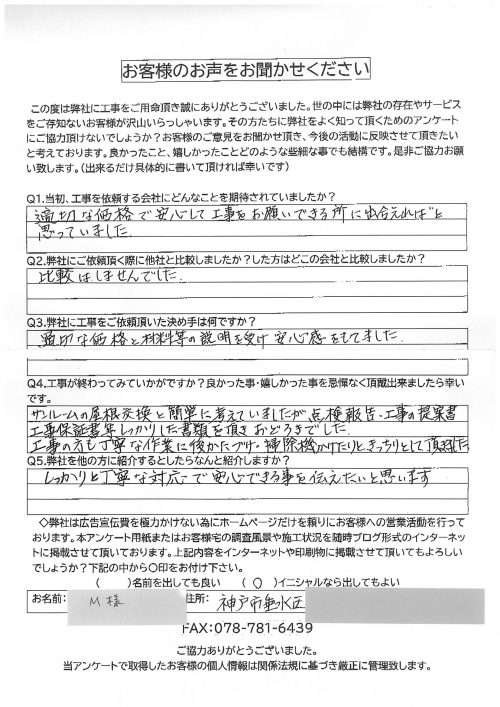 お客様のお声をお聞かせください
この度は弊社に工事をご用命頂き誠にありがとうございました。世の中には弊社の存在やサービス
をご存知ないお客様が沢山いらっしゃいます。その方たちに弊社をよく知って頂くためのアンケート
にご協力頂けないでしょうか？お客様のご意見をお聞かせ頂き、今後の活動に反映させて頂きたい
と考えております。良かったこと、嬉しかったことどのような些細な事でも結構です。是非ご協力お願
い致します。（出来るだけ具体的に書いて頂ければ幸いです）
Q1.当初、工事を依頼する会社にどんなことを期待されていましたか？
適切な価格で安心して工事をお願いできる所に出会えればと
思っていました
Q2.弊社にご依頼頂く際に他社と比較しましたか？した方はどこの会社と比較しましたか？
比較はしませんでした.
Q3.弊社に工事をご依頼頂いた決め手は何ですか？
適切な価格と材料等の説明を受け安心感をもてました.
Q4.工事が終わってみていかがですか？良かった事・嬉しかった事を忌憚なく頂戴出来ましたら幸い
です。
サンルームの屋根交換と簡単に考えていましたが点検報告・工事の提案書
工事保証書等しっかりした書類を頂きおどろきでした.
工事の方も丁寧な作業に後かたづけ・掃除機かけたりときっちりとして頂けた
Q5.弊社を他の方に紹介するとしたらなんと紹介しますか？
しっかりと丁寧な対応で安心できる事を伝えたいと思います
◇弊社は広告宣伝費を極力かけない為にホームページだけを頼りにお客様への営業活動を行って
おります。本アンケート用紙またはお客様宅の調査風景や施工状況を随時ブログ形式のインターネッ
トに掲載させて頂いております。上記内容をインターネットや印刷物に掲載させて頂いてもよろしい
でしょうか？下記の中から〇印をお付け下さい。
（　　）名前を出しても良い　（〇）イニシャルなら出してもよい
お名前：M様　住所：神戸市垂水区
FAX:078-781-6439
ご協力ありがとうございました。
当アンケートで取得したお客様の個人情報は関係法規に基づき厳正に管理致します。